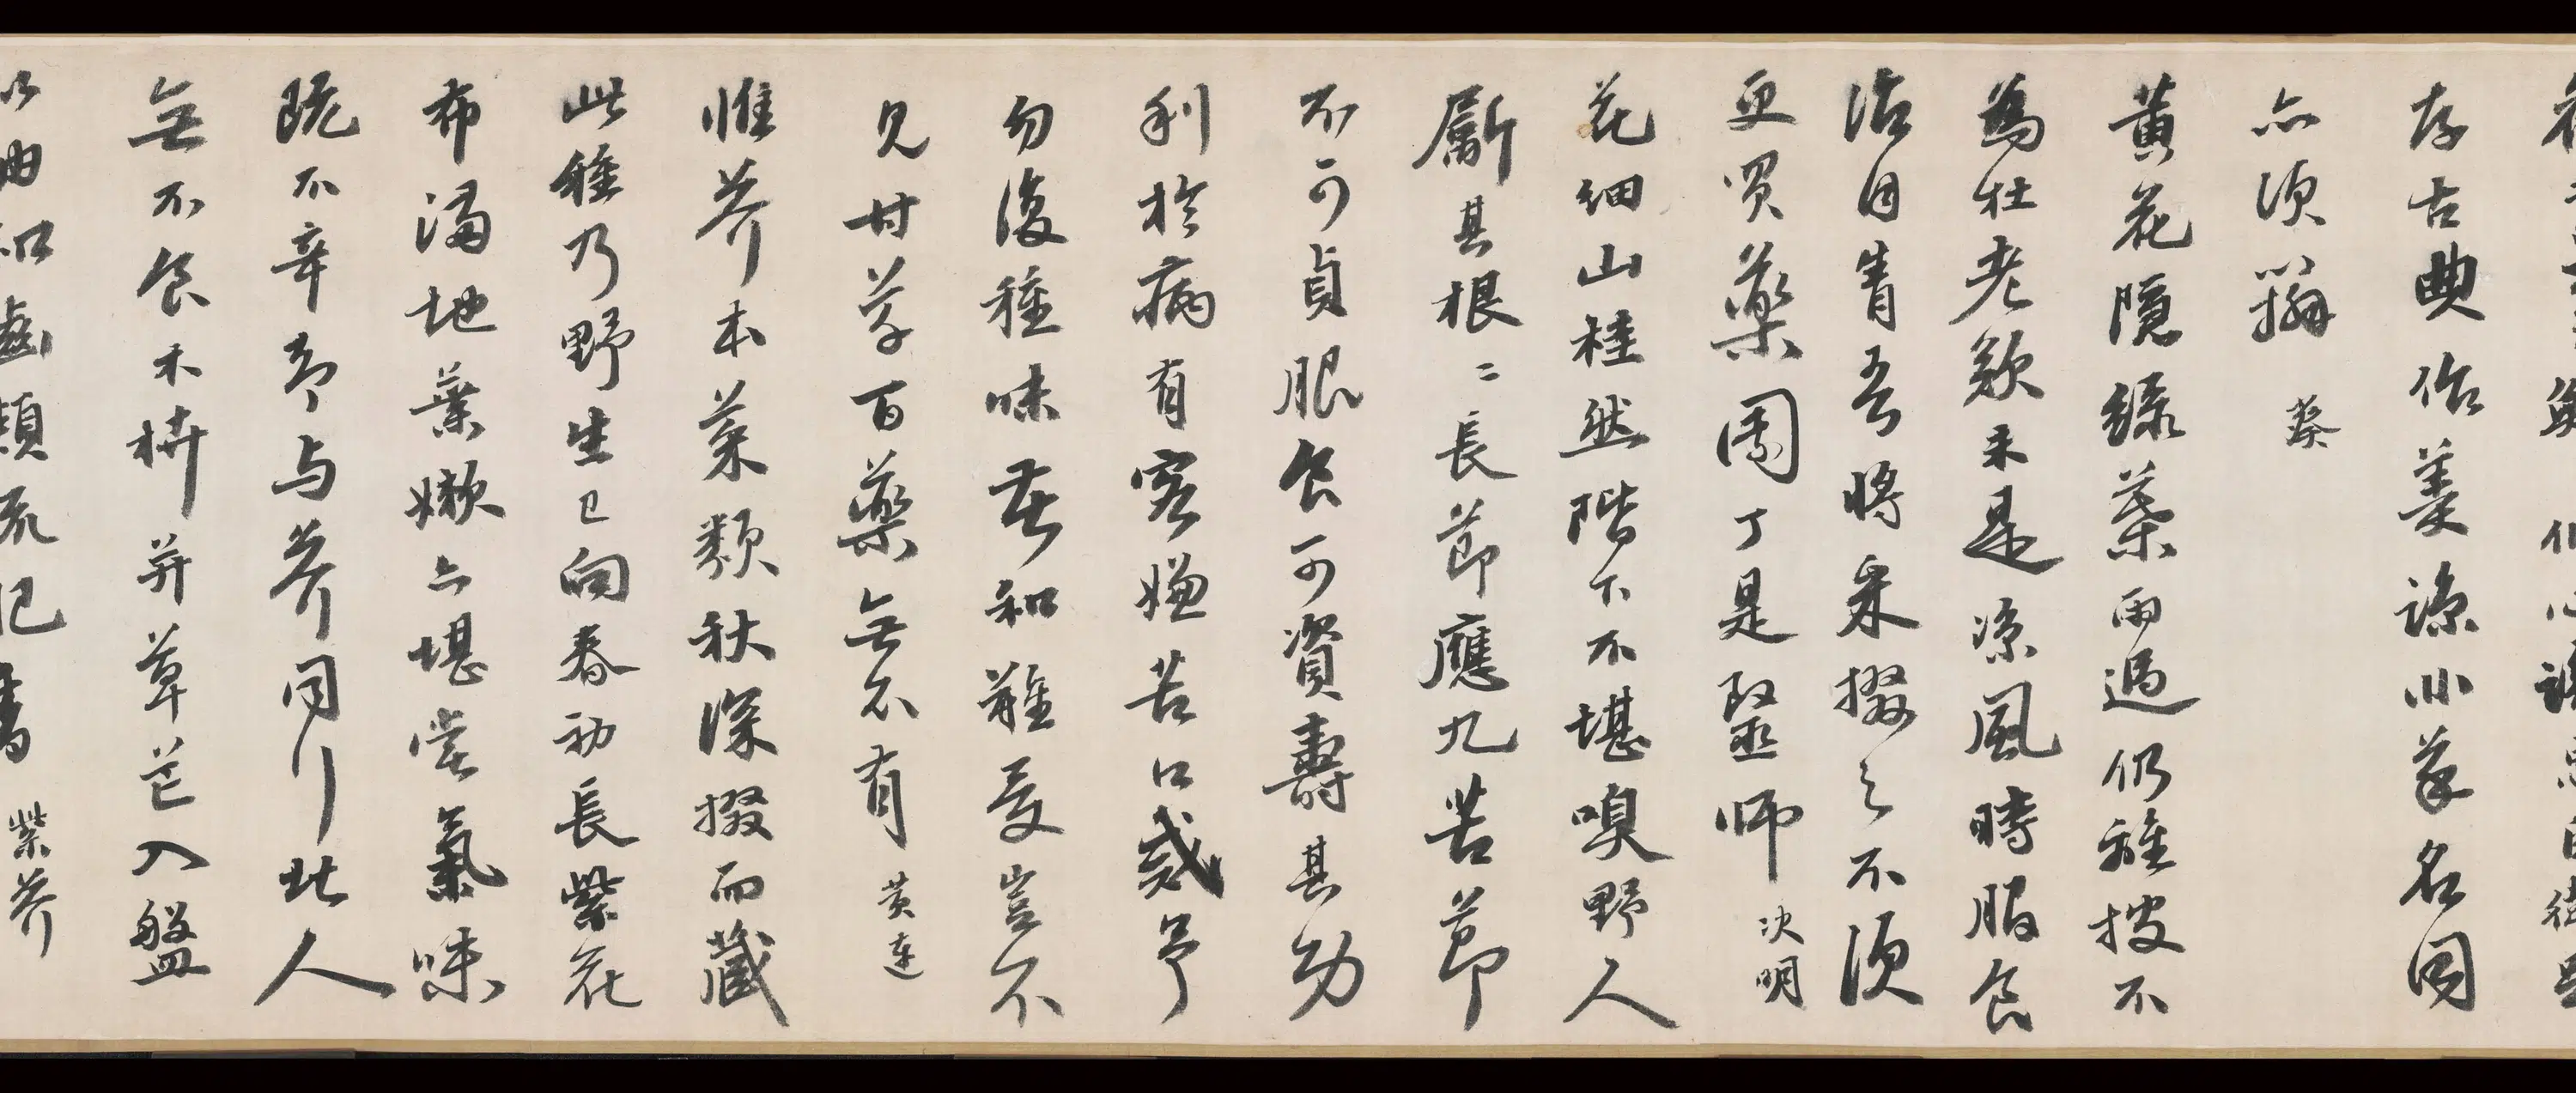 存古典作羹諒非蒙名園
亦須藝 葵
黃花隱綠葉雨過仍離披不
為杜老歎未是涼風時服食
治目眚吾將采掇之不須
更買藥園丁是毉師 决明
花細山桂然階下不堪嗅野人
劚其根根長節應九苦節
不可貞服食可資壽其功
利於病有客嫌苦口戒予
勿復種味苦和難受豈不
見甘草百藥無不有 黃連
惟芥本菜類秋深掇而藏
此種乃野生已向春初長紫花
布滿地葉嫩亦堪嘗氣味
既不辛芎与芥同行此人
無不食木枿并草芒入盤
紫芥